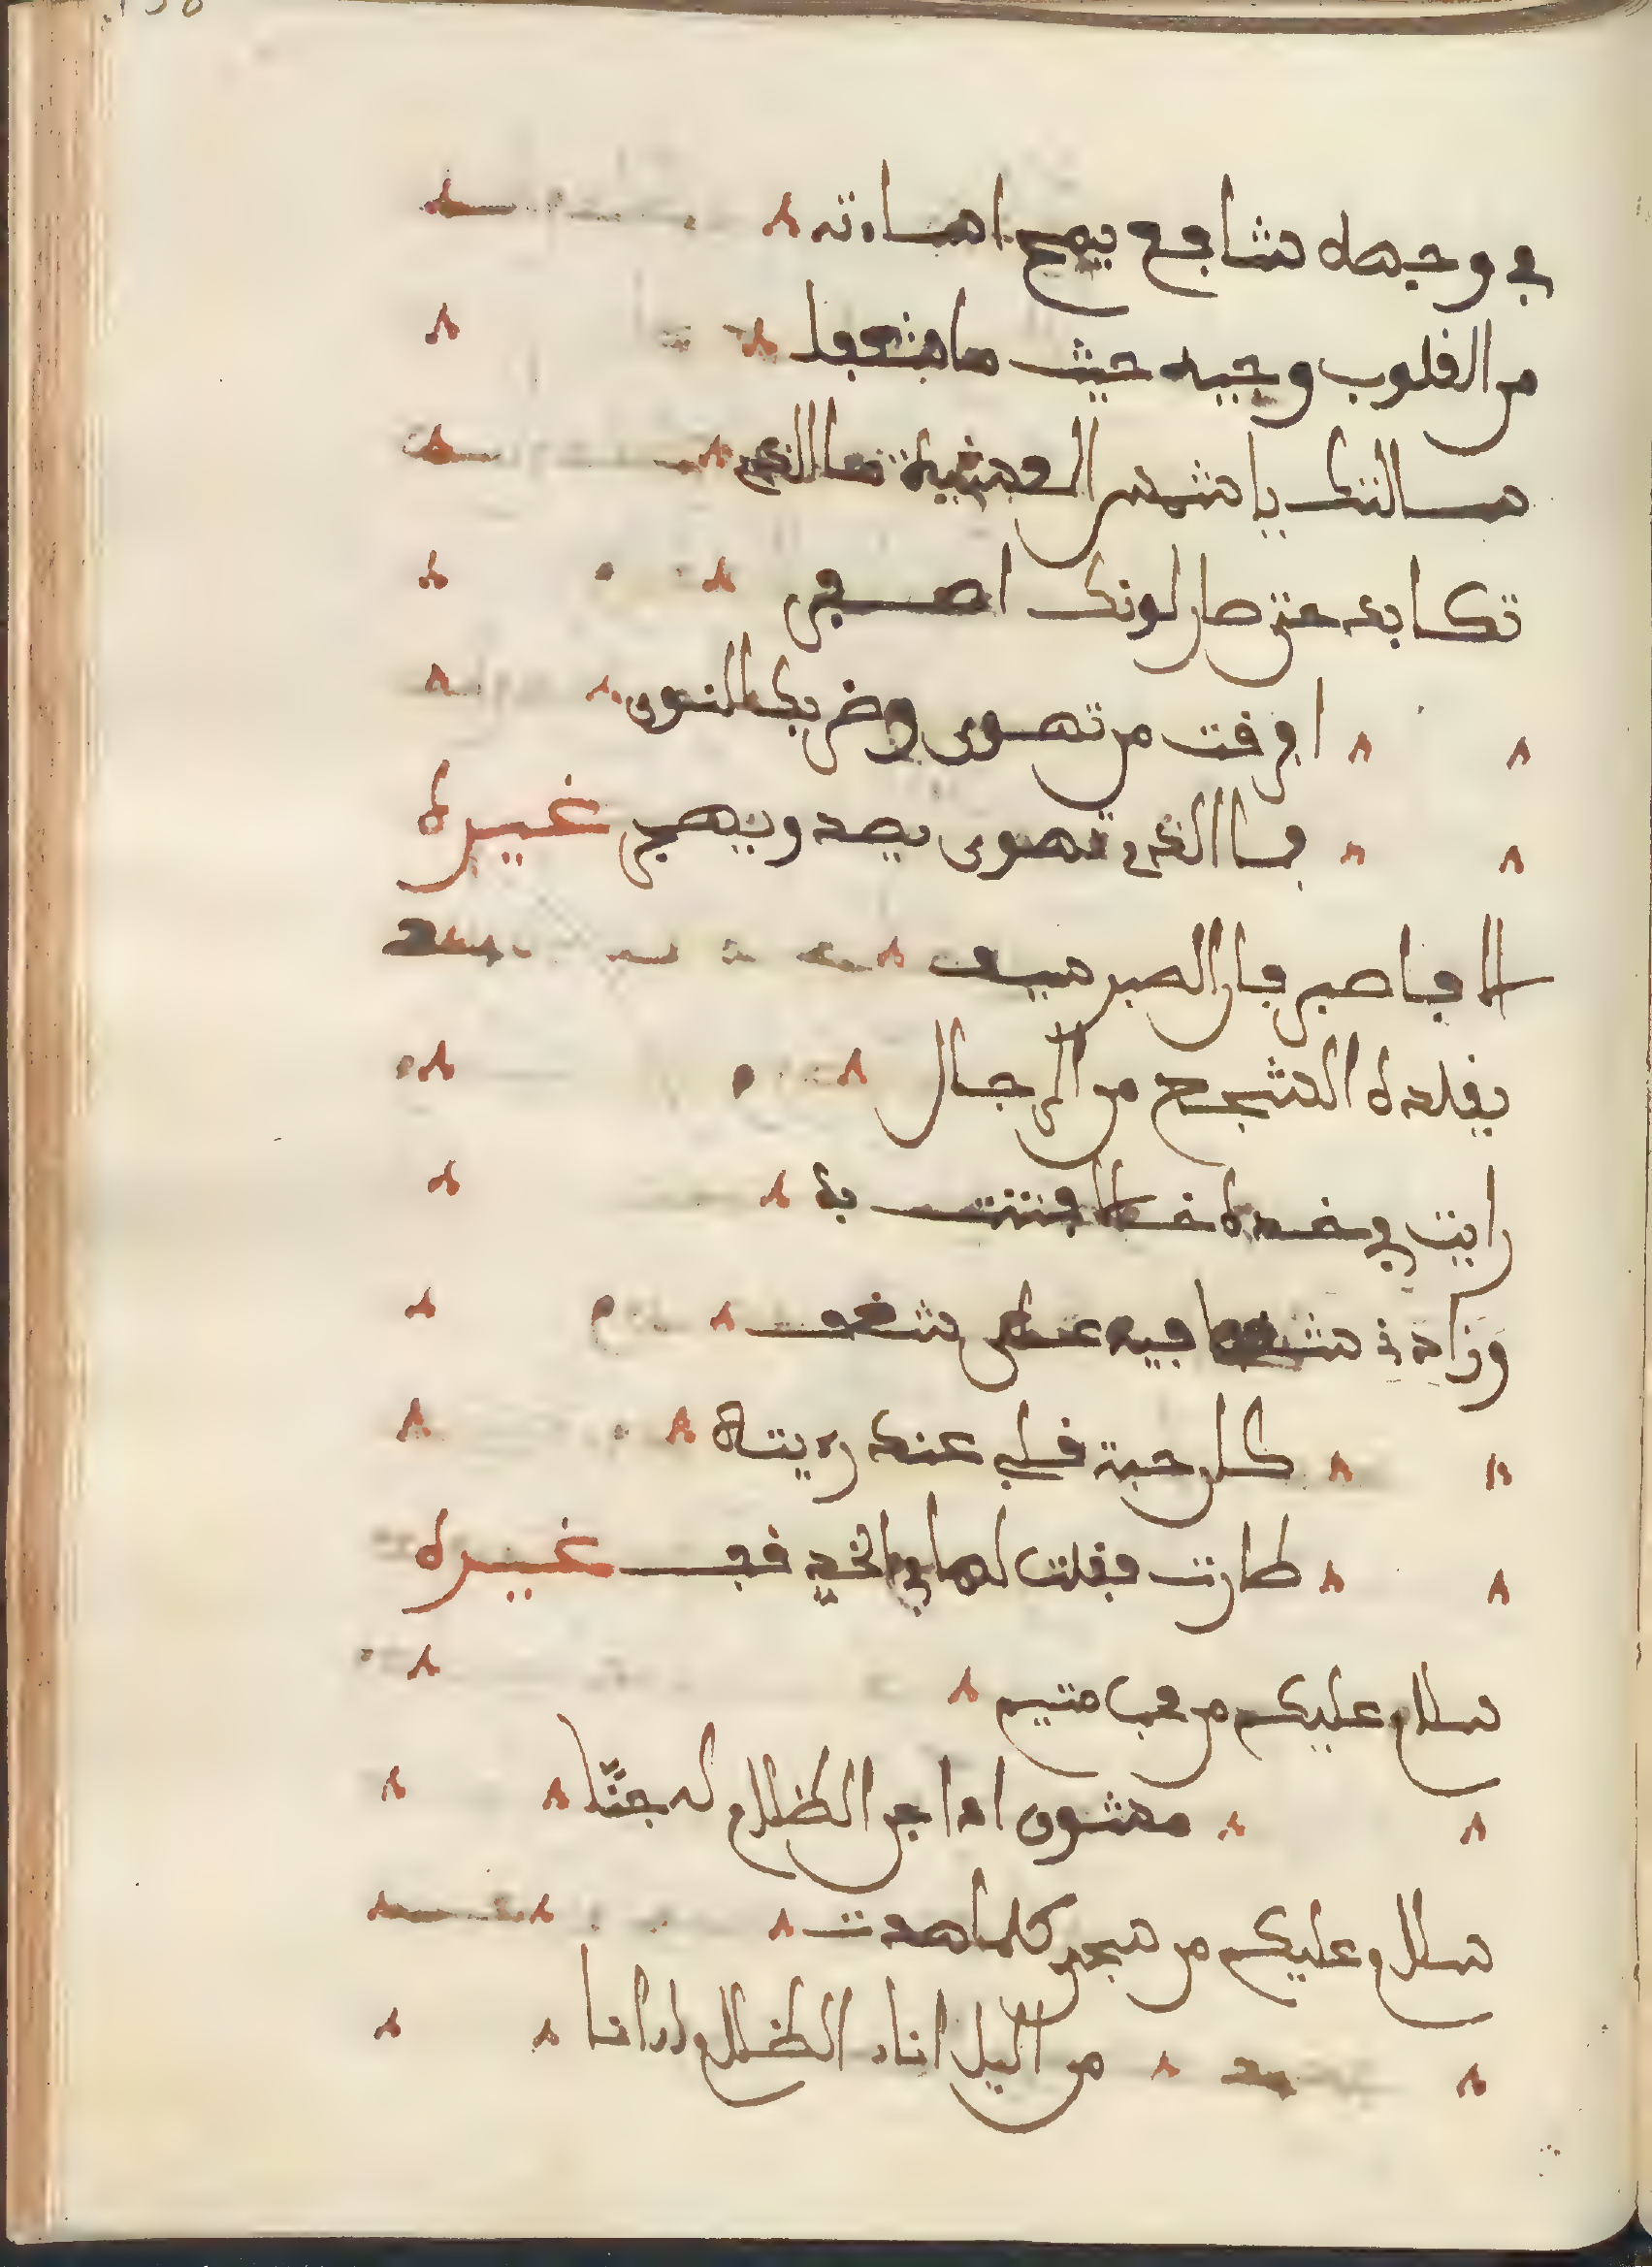 في وجهه شافع يمح اساءته
من القلوب وجيه حيث ما شفعا
سالتك يا شمس العشية ما الذي
تكابد حتى صار لونك اصفر
افرقت من تهوى وضر بك النوى
فما الذي تهوى يصد ويهجر غيره
الا فاصبر فان الصبر سيف
يقلده الشجيع من الرجال
رايت في خده خالا فتنت به
وزادني شغفا فيه على شغف
كل حبة قلبي عند رؤيته
طارت فقلت لها في الخد قف غيره
سلام عليكم من محب متيم
مشوق اذا جن الظلام له جنا
سلام عليكم من شجي كلما هدت
من اليل اناء الظلام